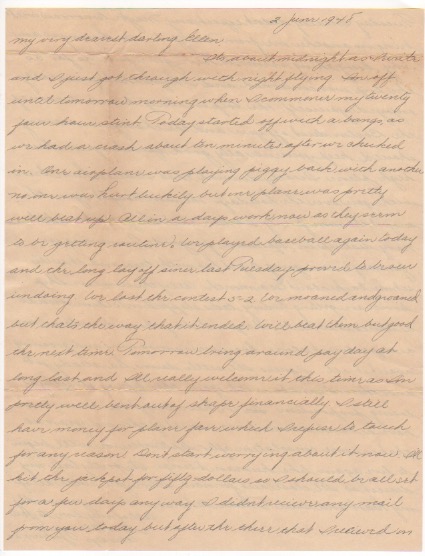 2 June 1945
My very dearest darling Ellen
Its about midnight as I write
and I just got through with night flying. I'm off
until tomorrow morning when I commence my twenty
four hour stint. Today started off with a bang, as
we had a crash about ten minutes after we checked
in. One aeroplane was playing piggy back with another
no one was hurt luckily but one plane was pretty
well beat up. All in a days work now as they seem
to be getting routine. We played baseball again today
and the long lay off since last Tuesday proved to be our
undoing. We lost the contest 5-2. We moaned and groaned
but thats the way that it ended. We'll beat them but good
the next time. Tomorrow being around pay day at
long last and I'll really welcome it this time as I'm
pretty well bent out of shape financially. I still
have money for plane fare which I refuse to touch
for any reason. Dont start worrying about it now. I'll
hit the jackpot for fifty dollars, so I should be all set
for a few days any way. I didnt receive any mail
from you today but after the three that I received in